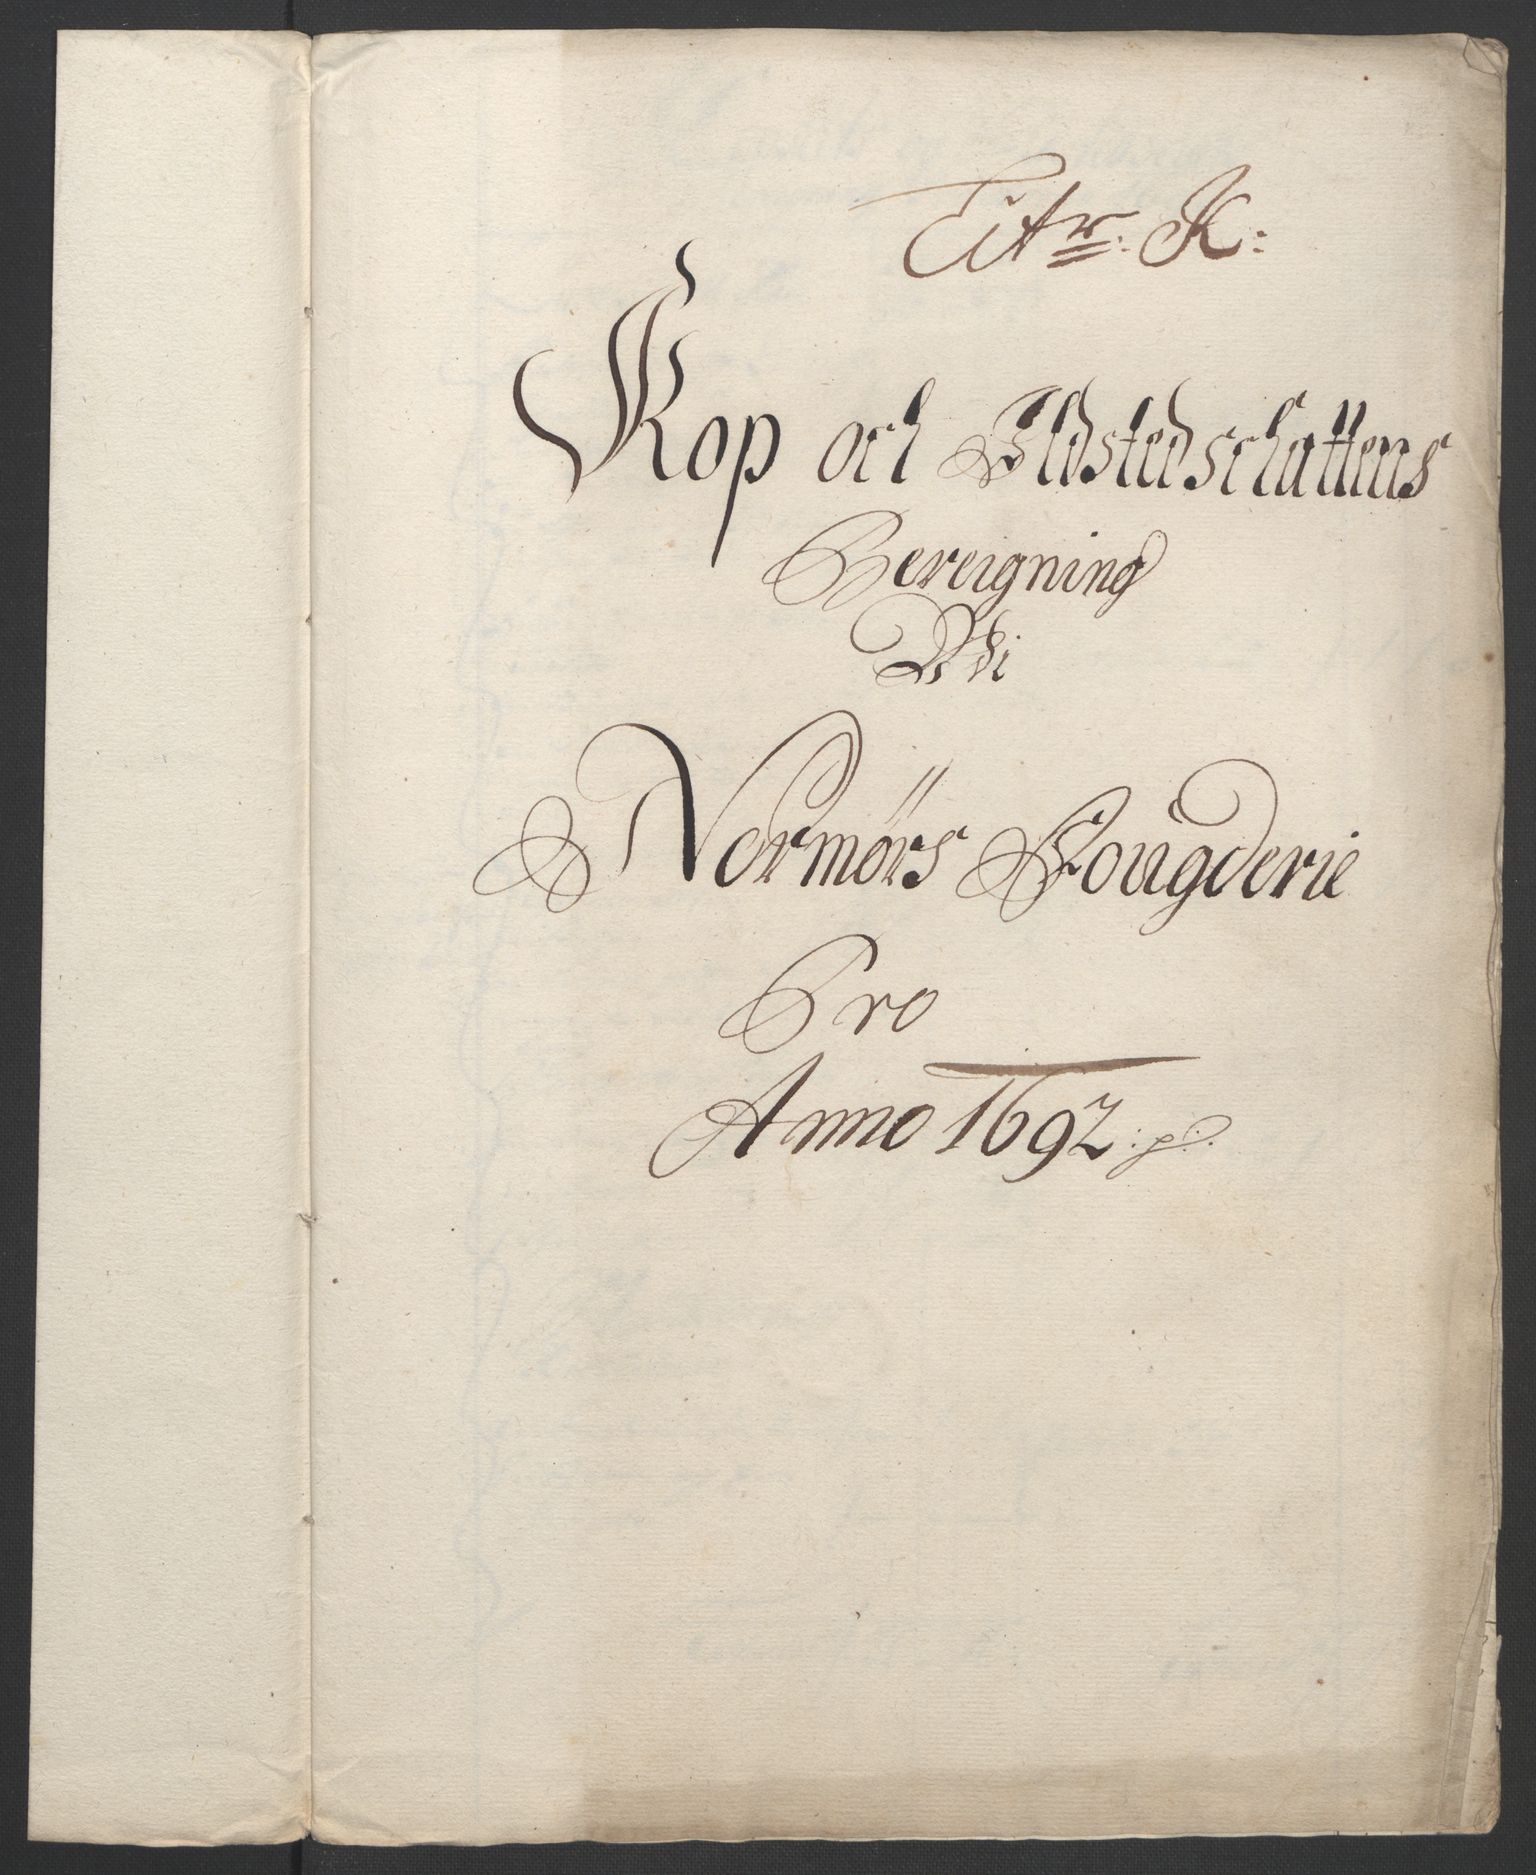 Litr: K:
Kop och Ildstedschattens
Bereigning
Udi
Normörs Fougderie
Pro
Anno 1692 :p: